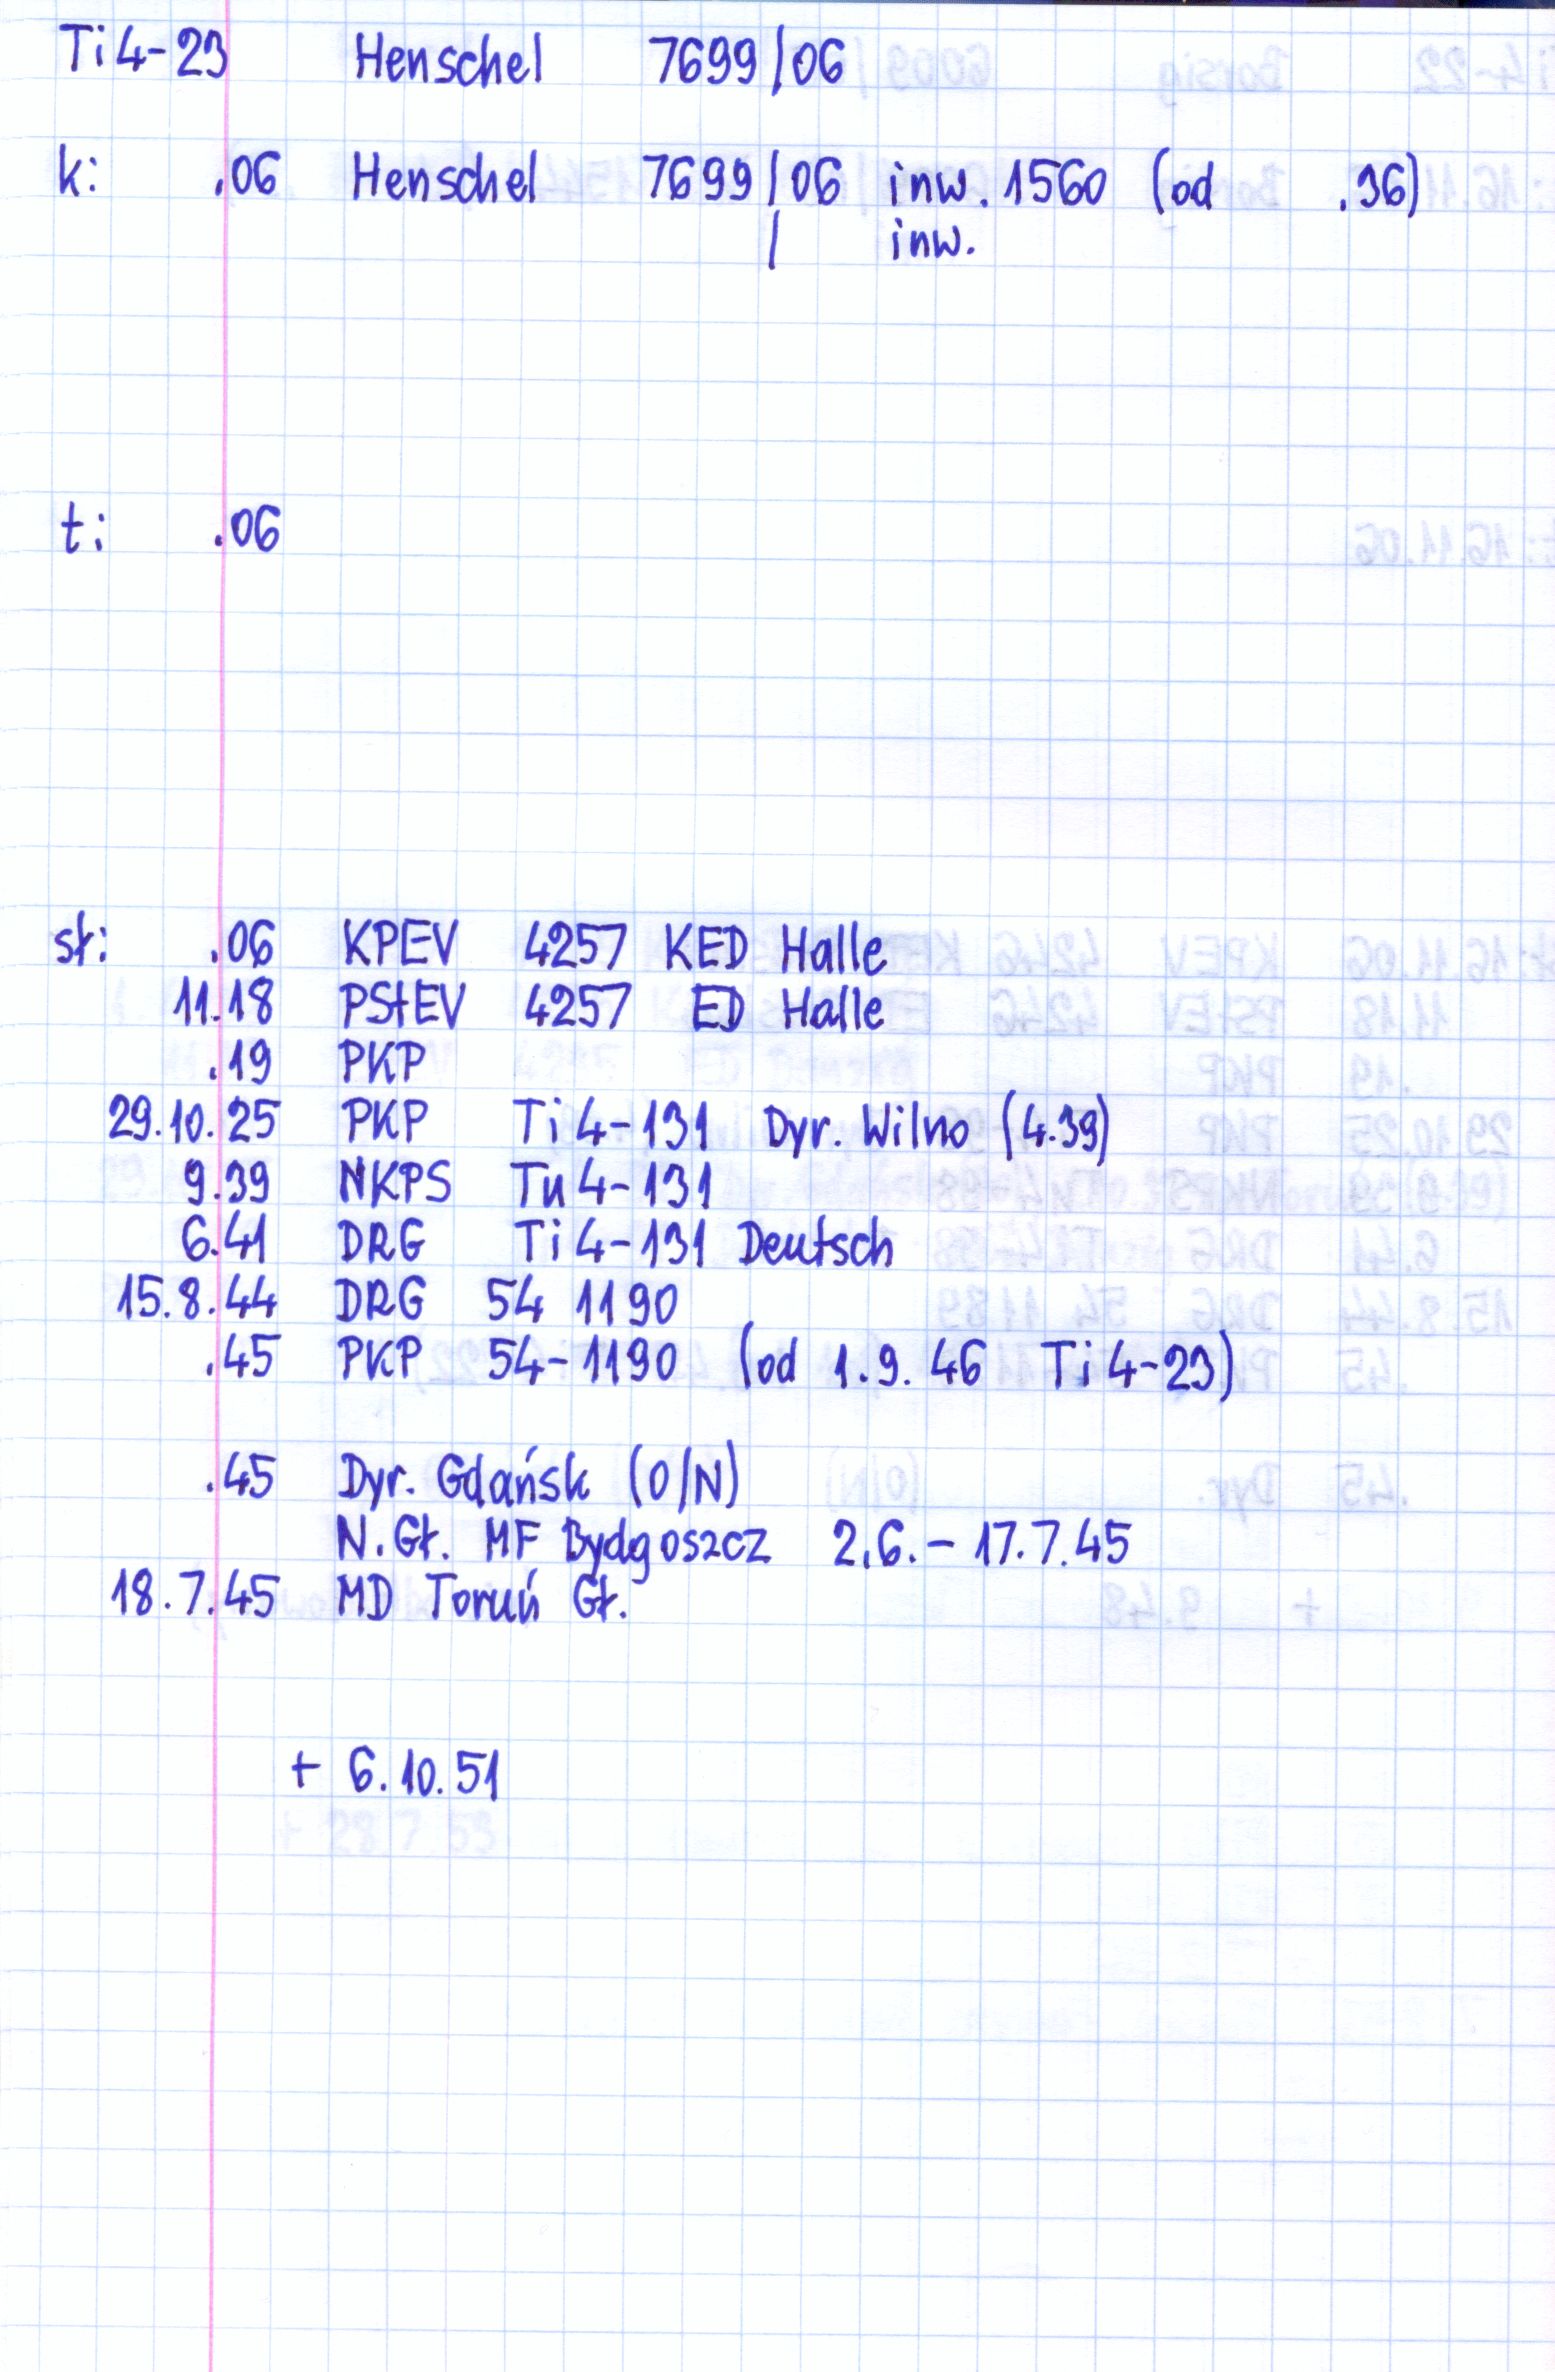 Ti4-23 Henschel 7699/06
k: .06 Henschel 7699/06 inw. 1560 (od .36)
/ inw.
t: .06
st: .06 KPEV 4257 KED Halle
11.18 PStEV 4257 ED Halle
.19 PKP
29.10.25 PKP Ti4-131 Dyr. Wilno (4.39)
9.39 NKPS Tu4-131
6.41 DRG Ti4-131 Deutsch
15.8.44 DRG 54 1190
.45 PKP 54-1190 (od 1.9.46 Ti4-23)
.45 Dyr. Gdańsk (O/N)
N.Gł. MF Bydgoszcz 2.6.-17.7.45
18.7.45 MD Toruń Gł.
+ 6.10.51